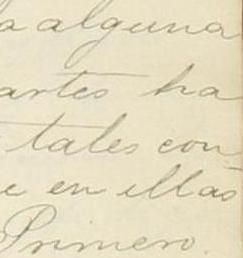 a alguna
artes ha
tales con
e en ellas
Primero.